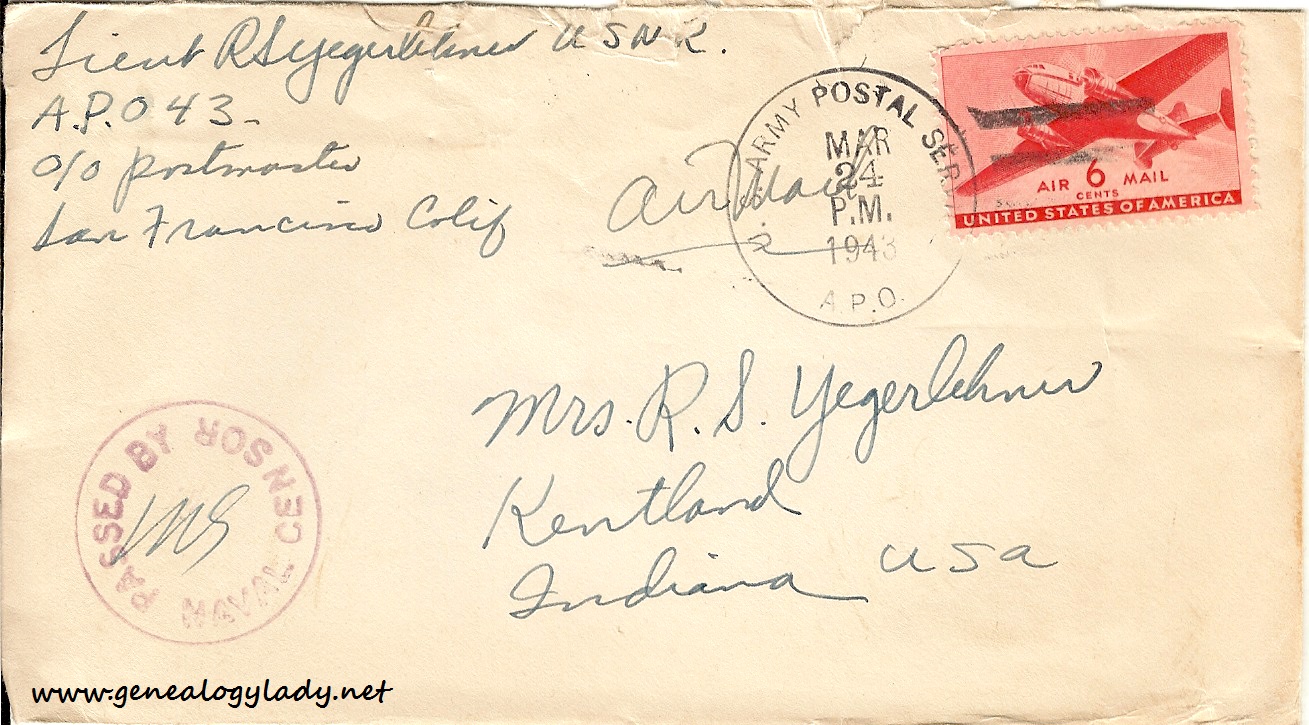 Lieut RSYegerlehner USNR.
A.P.O 43-
c/o postmaster
San Francisco Calif
Air Mail
ARMY POSTAL SER
MAR
24
P.M.
1943
A.P.O.
AIR 6 MAIL
CENTS
UNITED STATES OF AMERICA
Mrs. R. S. Yegerlehner
Kentland
Indiana USA
PASSED BY NAVAL CENSOR
www.genealogylady.net